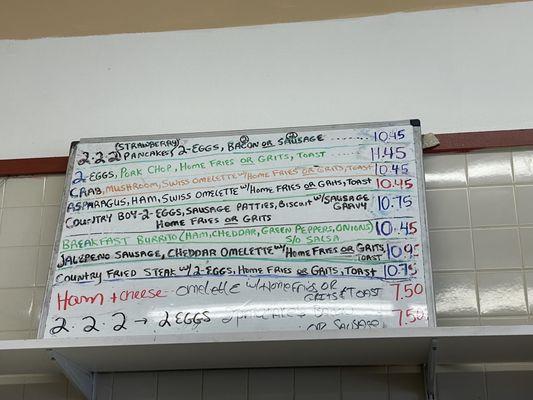 (STRAWBERRY) ② ④
2-2-2 PANCAKES, 2-EGGS, BACON OR SAUSAGE ....... 10.45
2-EGGS, PORK CHOP, HOME FRIES OR GRITS, TOAST 11.45
CRAB, MUSHROOM, SWISS OMELETTE W/HOME FRIES OR GRITS, TOAST 10.45
ASPARAGUS, HAM, SWISS OMELETTE W/HOME FRIES OR GRITS, TOAST 10.45
COUNTRY BOY-2-EGGS, SAUSAGE PATTIES, BISCUIT W/SAUSAGE GRAVY 10.75
HOME FRIES OR GRITS
BREAKFAST BURRITO (HAM, CHEDDAR, GREEN PEPPERS, ONIONS) 10.45
S/O SALSA
JALEPENO SAUSAGE, CHEDDAR OMELETTE W/HOME FRIES OR GRITS, TOAST 10.95
COUNTRY FRIED STEAK W/2-EGGS, HOME FRIES OR GRITS, TOAST 10.75
Ham + cheese - OMELETTE W/HOME FRIES OR 7.50
GRITS & TOAST
2.2.2 → 2 EGGS 2 PANCAKES 7.50
OR SAUSAGE